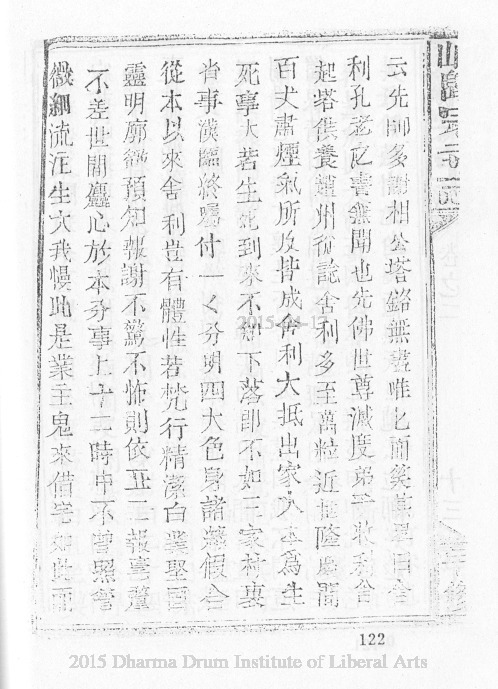 云先師多謝相公塔銘無盡唯匕而笑其畧曰舍
利孔老之書無聞也先佛世尊滅度弟子收利舍
起塔供養趙州從諗舍利多至萬粒近世隆慶閑
百丈肅煙氣所及皆成舍利大抵出家人本為生
死事大若生死到來不知下落即不如三家村裏
省事漢臨終囑付一〱分明四大色身諸緣假合
從本以來舍利豈有體性若梵行精潔白業堅固
靈明廓徹預知報謝不驚不怖則依正二報毫釐
不差世間麤心於本分事上十二時中不曾照管
微細流注生大我慢此是業主鬼來借宅如此而
122
2015-04-17
2015 Dharma Drum Institute of Liberal Arts